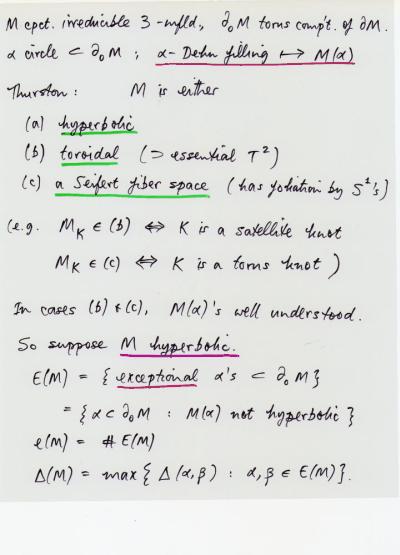 M cpct. irreducible 3-mfld., ∂₀M torus comp't. of ∂M.
α circle ⊂ ∂₀M ; α-Dehn filling ↦ M(α)
Thurston : M is either
(a) hyperbolic
(b) toroidal (⊃ essential T²)
(c) a Seifert fiber space (has foliation by S¹'s)
(e.g. M_K ∈ (b) ⇔ K is a satellite knot
M_K ∈ (c) ⇔ K is a torus knot )
In cases (b) & (c), M(α)'s well understood.
So suppose M hyperbolic.
E(M) = { exceptional α's ⊂ ∂₀M }
= { α ⊂ ∂₀M : M(α) not hyperbolic }
e(M) = # E(M)
Δ(M) = max { Δ(α,β) : α,β ∈ E(M) }.